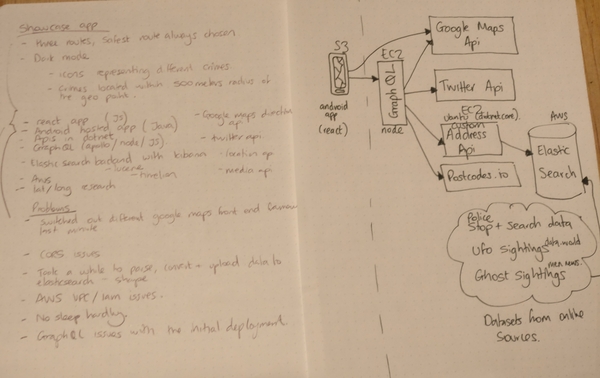 Showcase app
- three routes, safest route always chosen
- Dark mode
- icons representing different crimes
- crimes located within 500 meters radius of the geo points.
- react app (JS)
- Google maps direction api
- Android hosted app (Java)
- Apis in dotnet
- twitter api
- GraphQL (apollo/node/JS)
- Elastic search backend with kibana
- location api
- lucene
- media api
- Aws
- lat/long research
Problems
- switched out different google maps front end
last minute
- CORS issues
- Took a while to parse, convert + upload data to
elasticsearch - shape
- AWS VPC/iam issues.
- No sleep hardly
- GraphQL issues with the initial deployment.
S3
android
app
(react)
EC2
GraphQL
node
Google Maps
Api
Twitter Api
EC2
ubuntu (dotnet core)
custom
Address
Api
Postcodes.io
AWS
Elastic
Search
Police
Stop + search data
Ufo sightings data.world
Ghost sightings
Datasets from online
Sources.